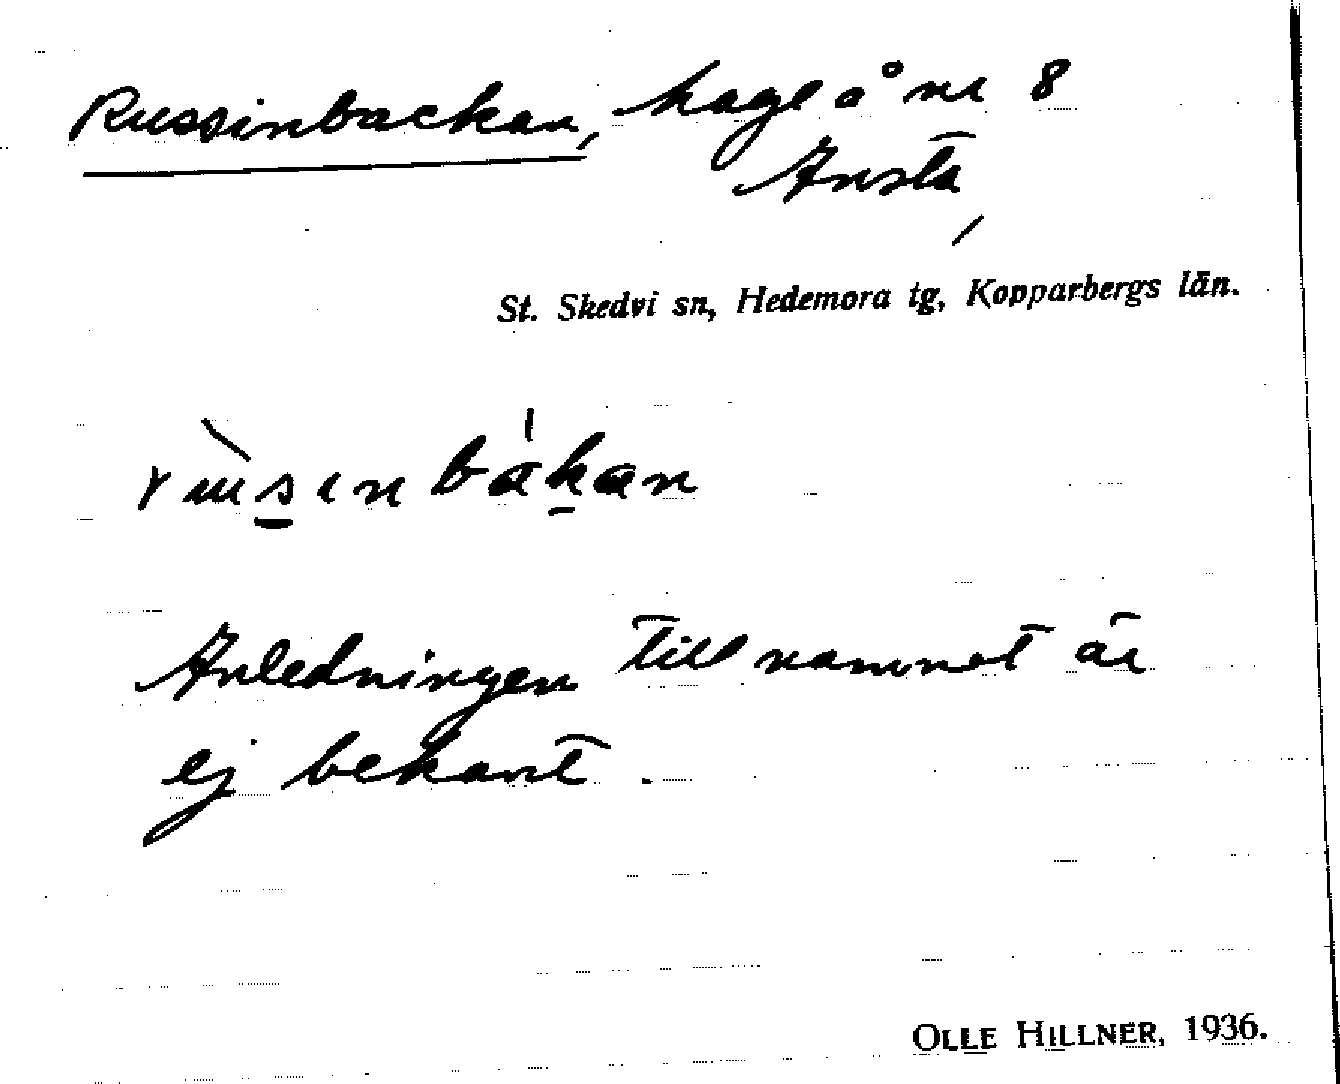 Russinbackan, hage å nr 8
Ansta,
St. Skedvi sn, Hedemora tg, Kopparbergs län.
Anledningen till namnet är
ej bekant.
OLLE HILLNER, 1936.